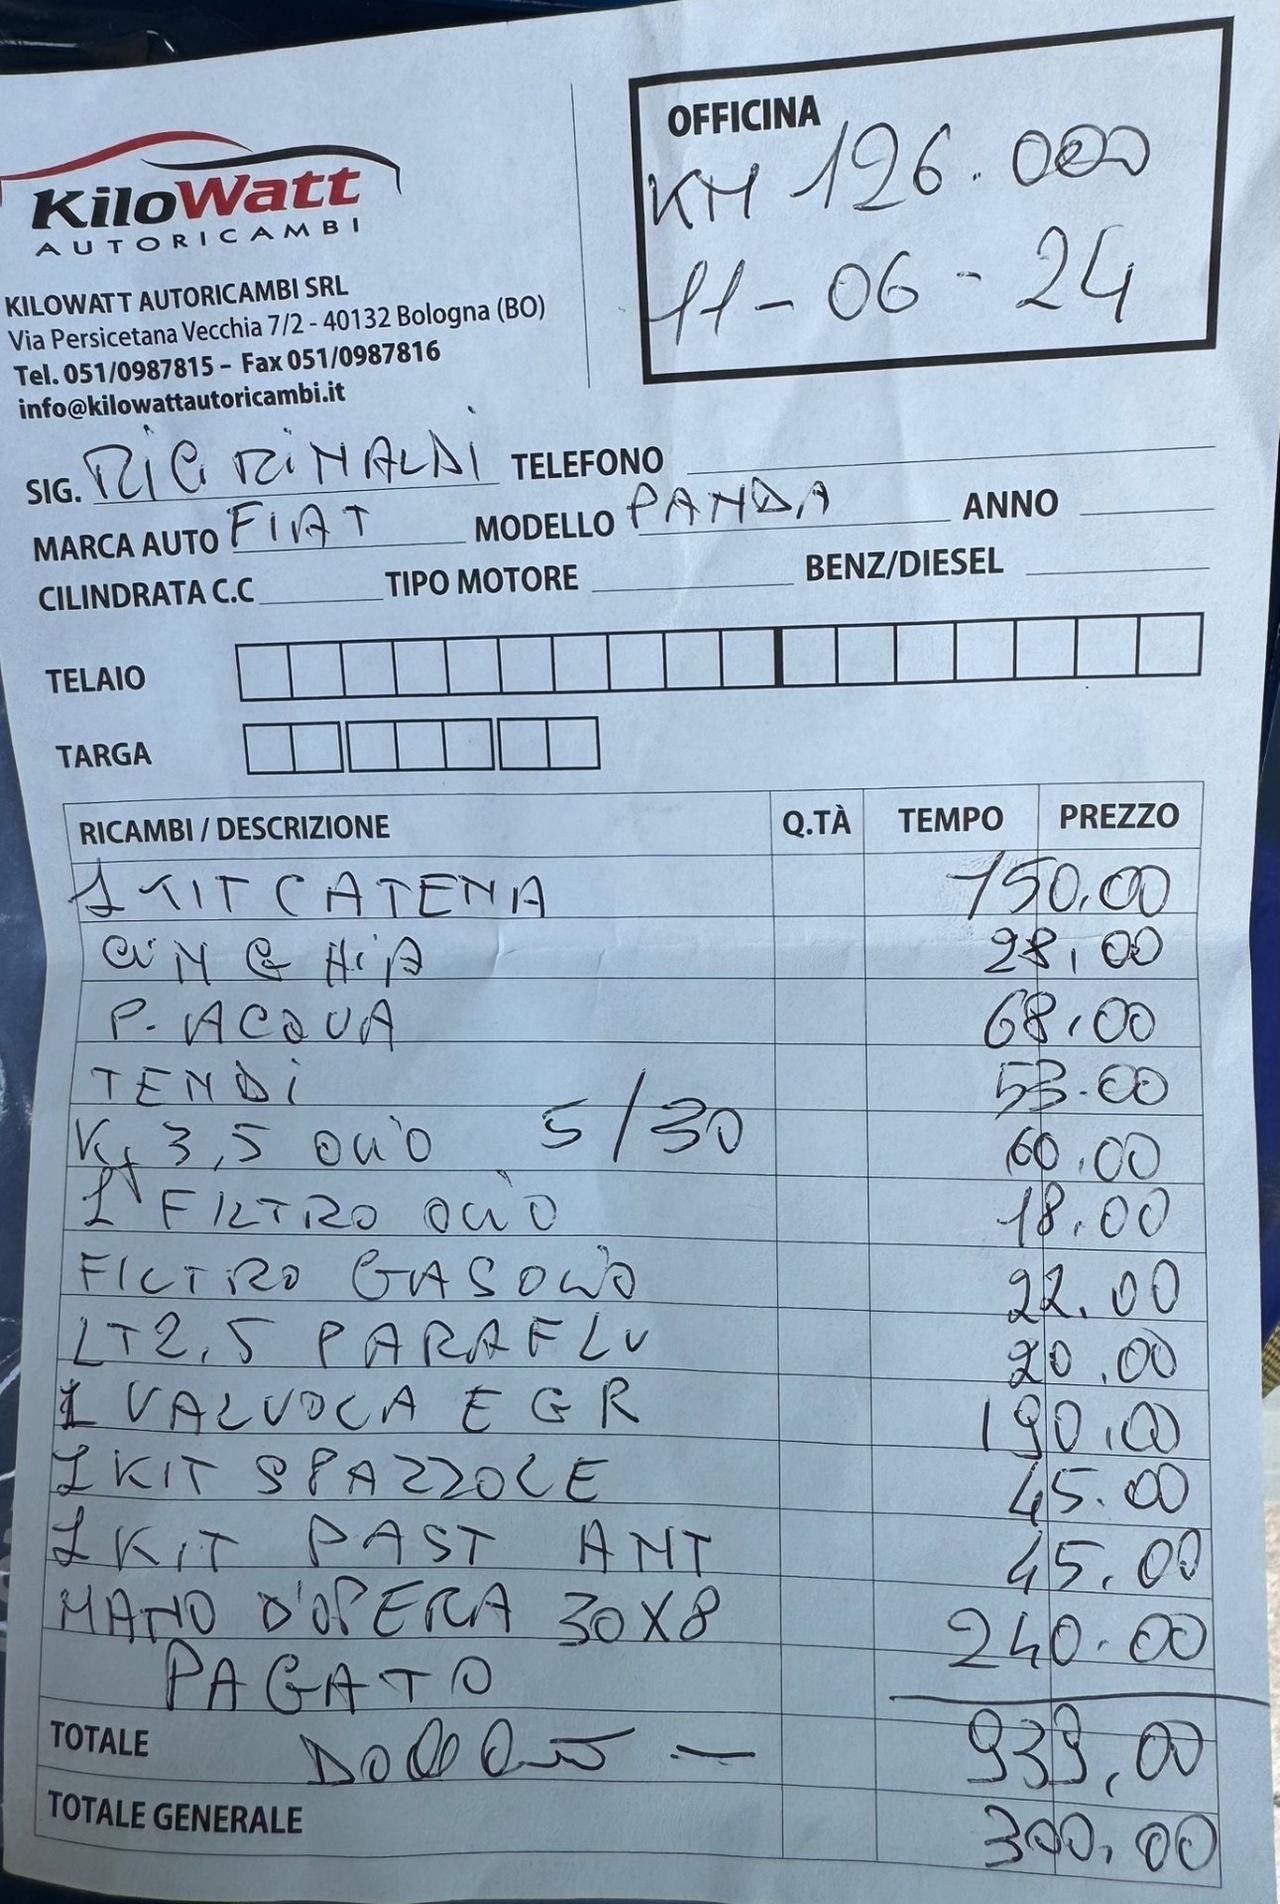 KiloWatt
AUTORICAMBI
KILOWATT AUTORICAMBI SRL
Via Persicetana Vecchia 7/2 - 40132 Bologna (BO)
Tel. 051/0987815 – Fax 051/0987816
info@kilowattautoricambi.it
OFFICINA
KM 126.000
11-06-24
SIG. RIG RINALDI TELEFONO
MARCA AUTO FIAT MODELLO PANDA ANNO
CILINDRATA C.C TIPO MOTORE BENZ/DIESEL
TELAIO
TARGA
RICAMBI / DESCRIZIONE Q.TÀ TEMPO PREZZO
1 KIT CATENA 150,00
CINGHIA 28,00
P. ACQUA 68,00
TENDI 53.00
KG 3,5 OLIO 5/30 60,00
1 FILTRO OLIO 18,00
FILTRO GASOLIO 22.00
LT 2,5 PARAFLU 20,00
1 VALVOLA EGR 190,00
1 KIT SPAZZOLE 45.00
1 KIT PAST ANT 45,00
MANO D'OPERA 30X8 240.00
PAGATO
TOTALE 939,00
TOTALE GENERALE 300,00